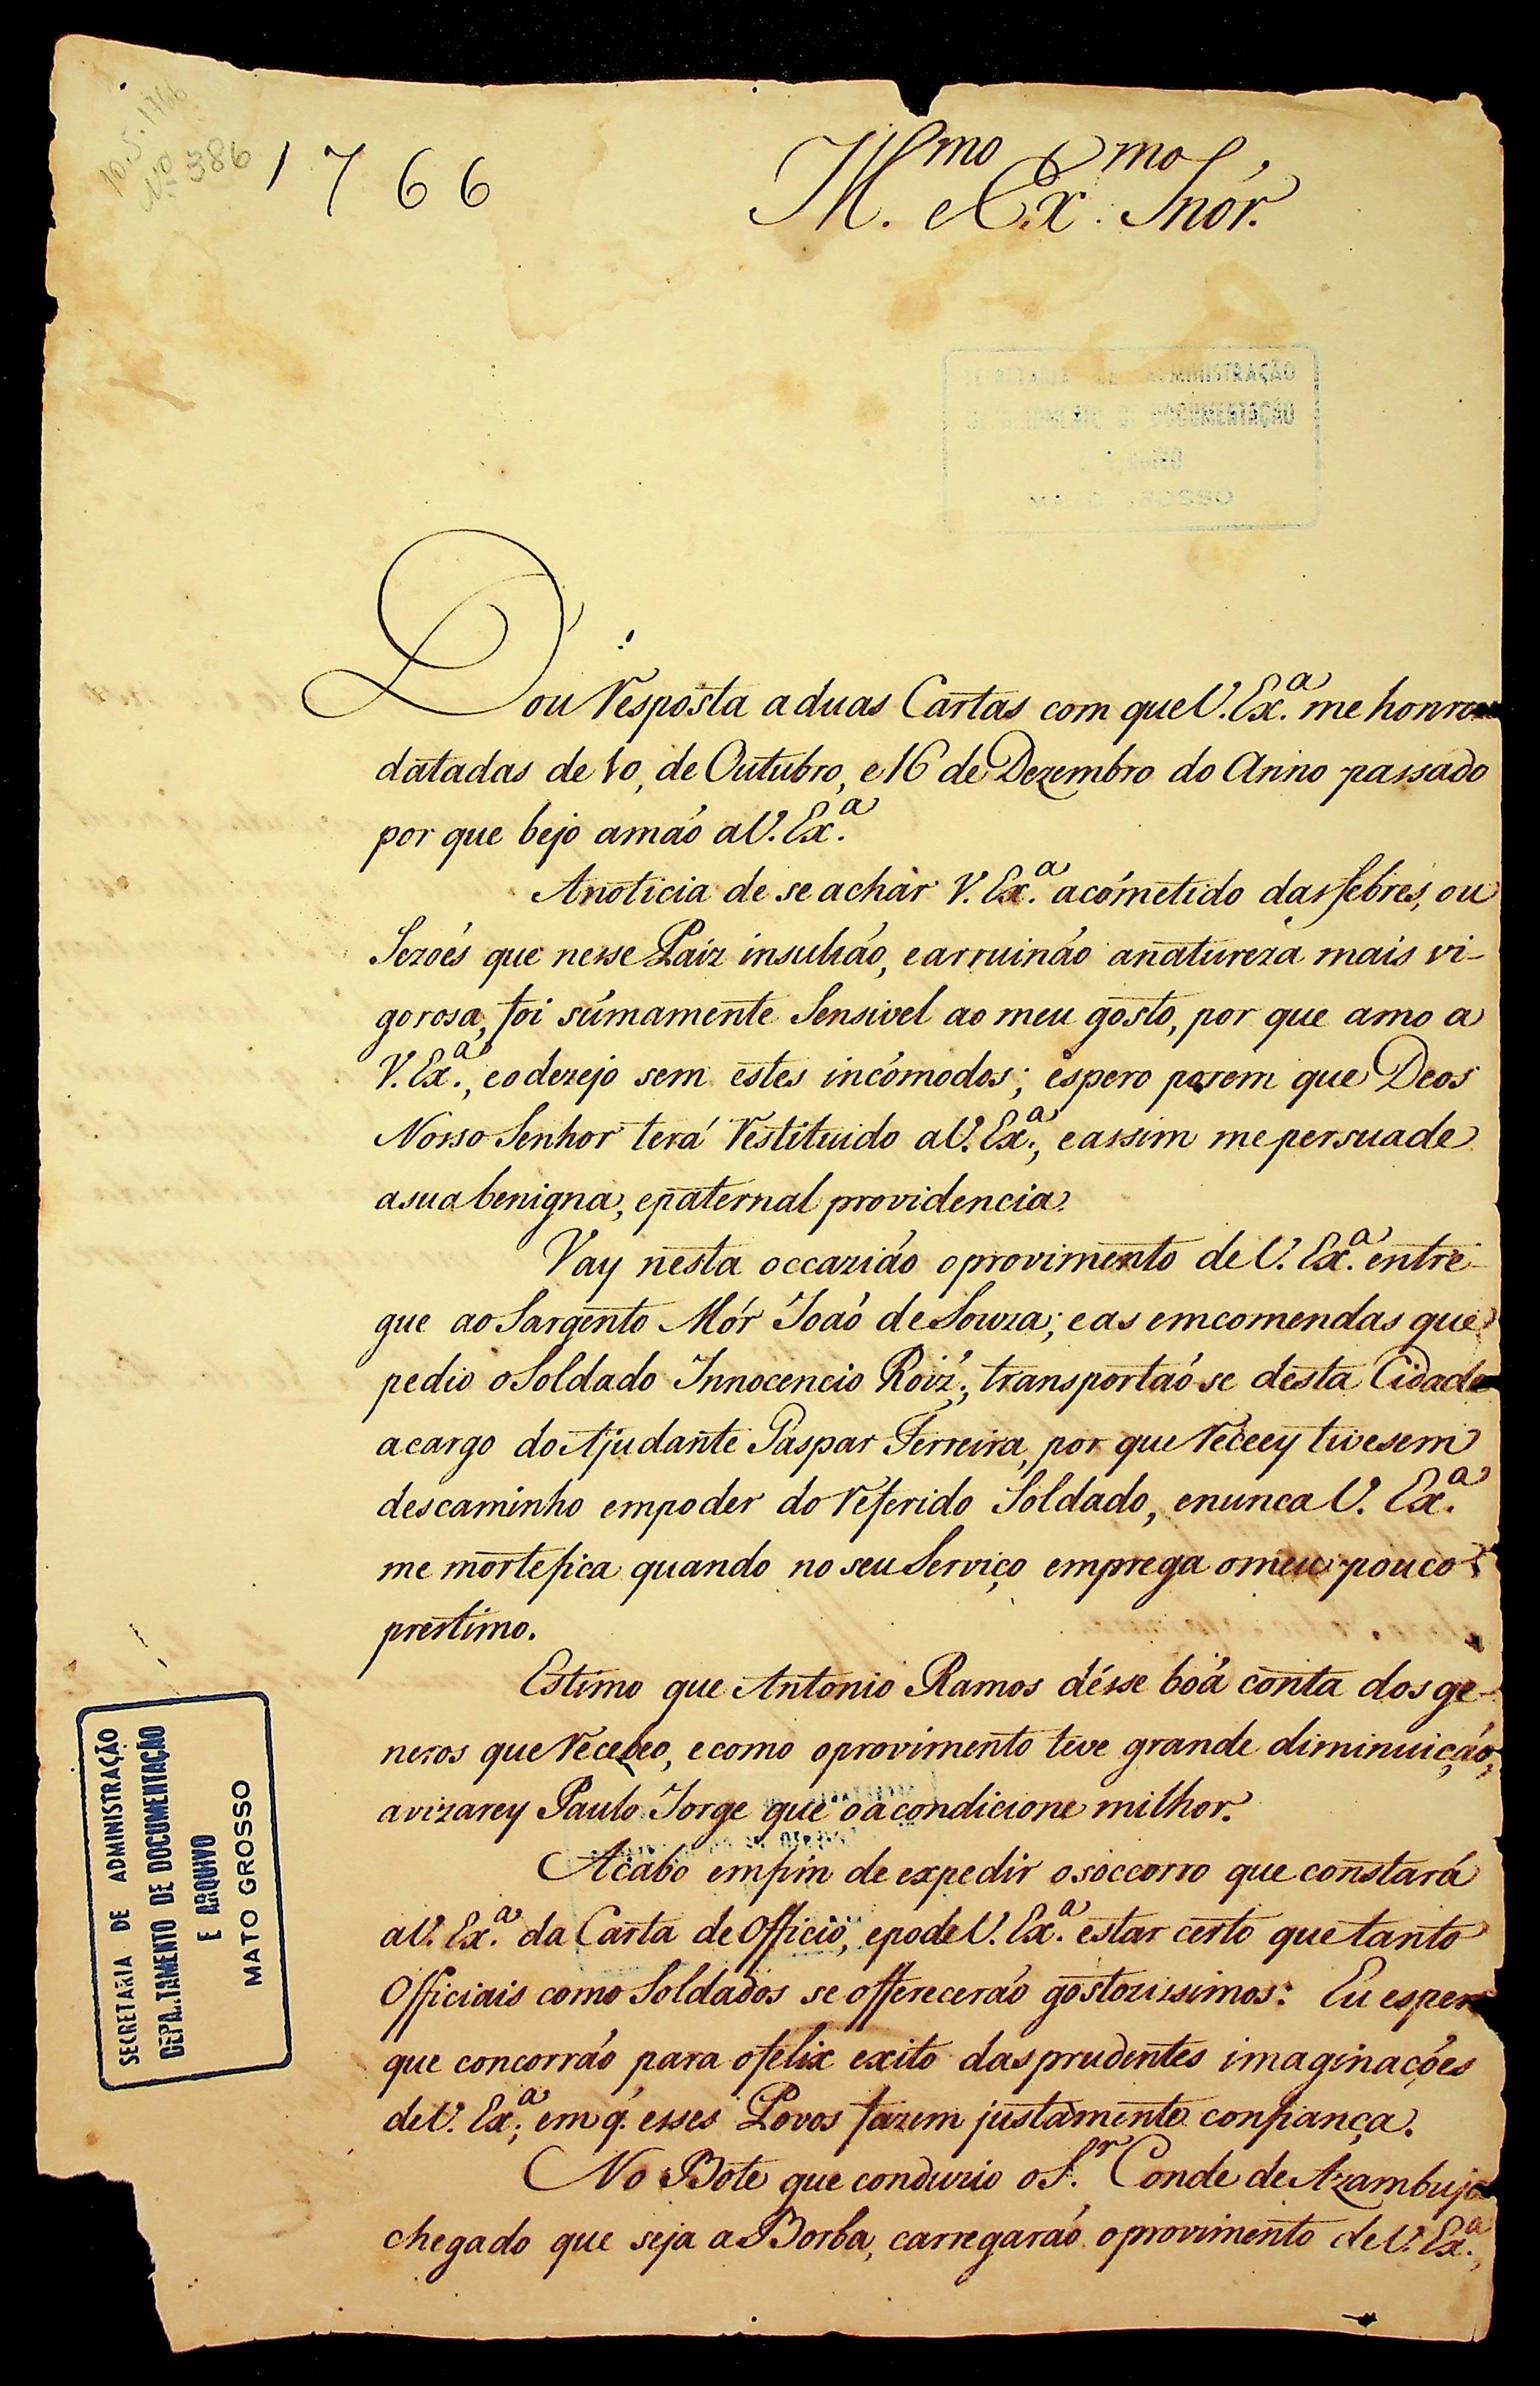 10.5.1766
Nº 386
1766
Ill.mo e Ex.mo Snór.
SECRETARIA DE ADMINISTRAÇÃO
DEPARTAMENTO DE DOCUMENTAÇÃO
E ARQUIVO
MATO GROSSO
Dou Resposta a duas Cartas com que V. Ex.a me honrou
datadas de 10, de Outubro, e 16 de Dezembro do Anno passado
por que bejo amaó aV. Ex.a
Anoticia de se achar V. Ex.a acómetido das febres, ou
Sezoés que nesse Paiz insultáo, earruináo anatureza mais vi-
gorosa, foi súmamente Sensivel ao meu gosto, por que amo a
V. Ex.a, eodezejo sem estes incómodos; espero porem que Deos
Nosso Senhor terá Restituido aV. Ex.a, eassim mepersuade
asua benigna, epaternal providencia.
Vay nesta occaziáo oprovimento de V. Ex.a entre-
gue ao Sargento Mór Joaó de Souza; eas emcomendas que
pedio oSoldado Innocencio Roiz', transportaó se desta Cidade
acargo do Ajudante Gaspar Ferreira, por que Receey tivesem
descaminho empoder do Referido Soldado, enunca V. Ex.a
me mortefica quando no seu Serviço emprega omeu pouco
prestimo.
Estimo que Antonio Ramos désse boã conta dos ge-
neros que Recebeo, ecomo oprovimento teve grande diminuiçáo,
avizarey Paulo Jorge que oacondicione milhor.
Acabo emfim de expedir osoccorro que constará
aV. Ex.a da Carta de Officio, epode V. Ex.a estar certo que tanto
Officiais como Soldados se offereceráo gostozissimos: Eu espero
que concorráo para ofelix exito das prudentes imaginaçóes
de V. Ex.a; em q. esses Povos fazem justamente confiança.
No Bote que conduzio oS.r Conde de Azambuja
chegado que seja a Borba, carregaraó oprovimento de V. Ex.a,
SECRETARIA DE ADMINISTRAÇÃO
DEPA..TAMENTO DE DOCUMENTAÇÃO
E ARQUIVO
MATO GROSSO